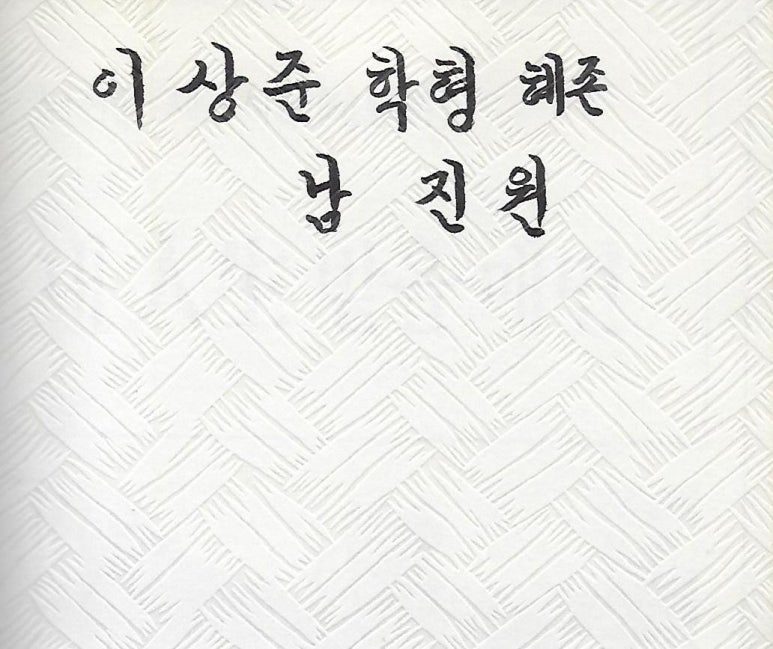 이상준 학형 혜존
남진원